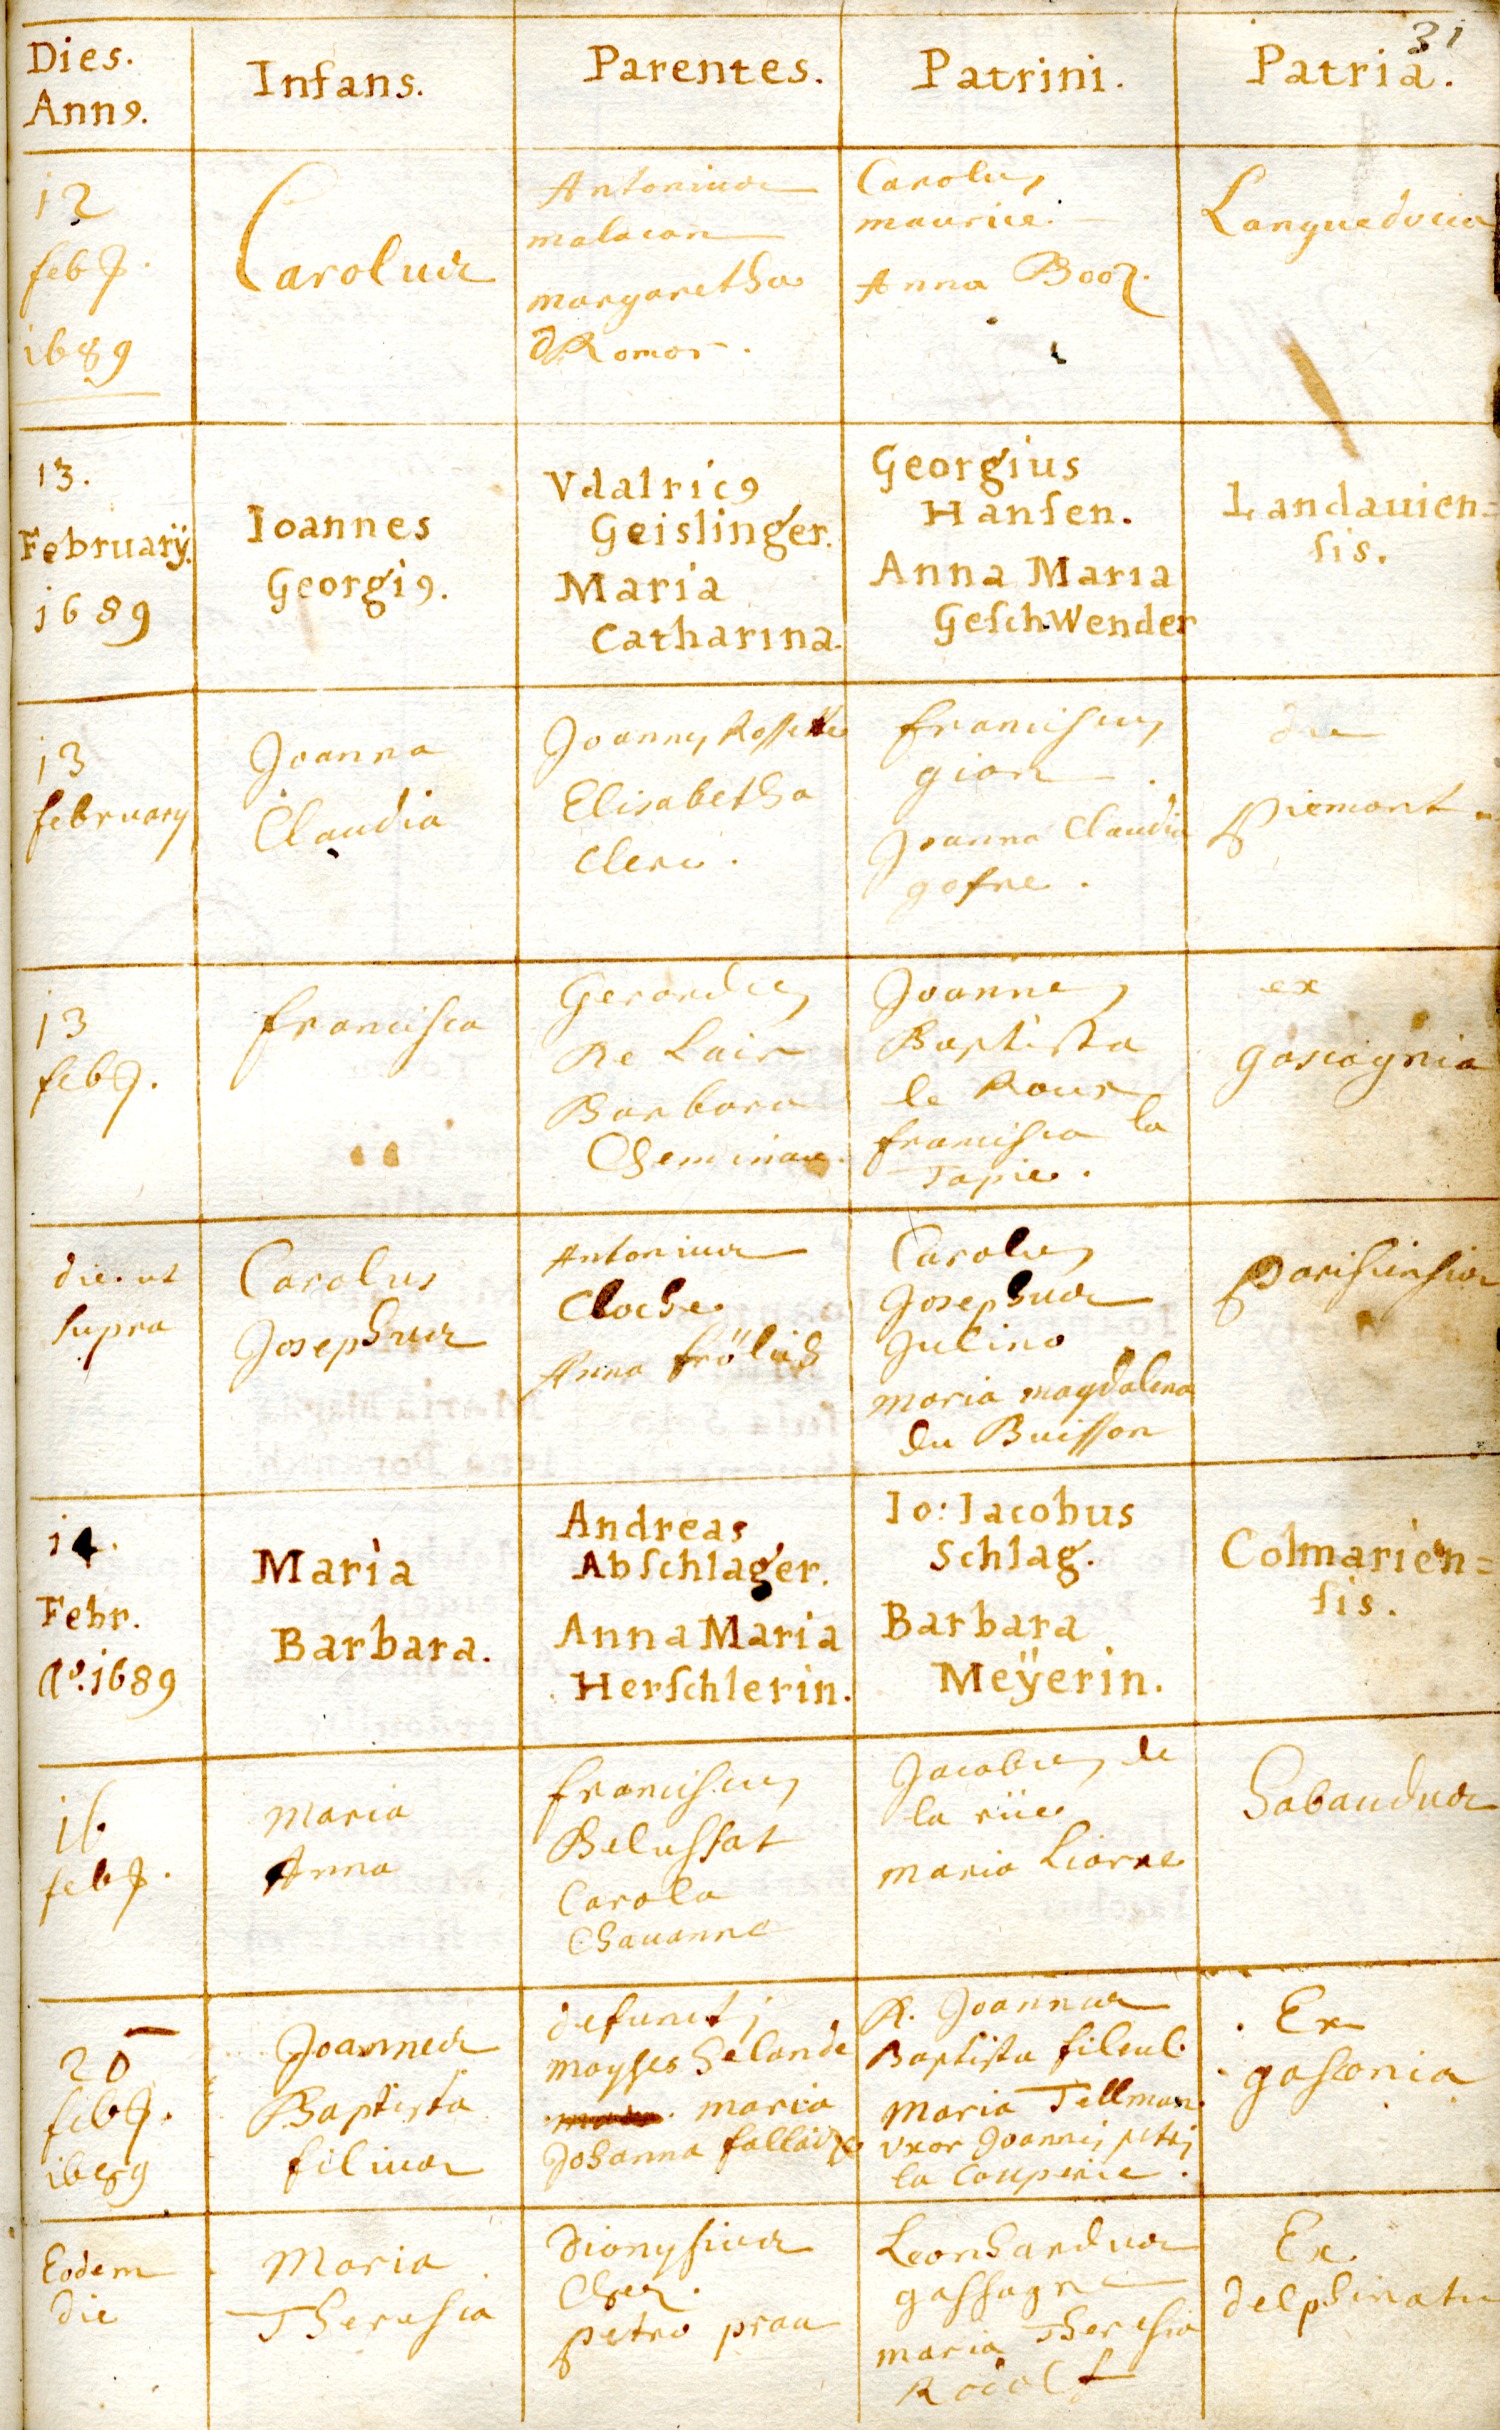 31
Dies.
Ann9.
Infans.
Parentes.
Patrini.
Patria.
12
feb
1689
Carolus
Antonius
malacan
margaretha
Carolus
maurice.
Anna Booz.
Languedocia
13.
Februarÿ.
1689
Ioannes
Georgi9.
Vdalric9
Geislinger.
Maria
Catharina.
Georgius
Hansen.
Anna Maria
Geschwender
Landauien=
sis.
13
february
Joanna
Claudia
Joannes
Elisabetha
Clerc.
franciscus
gion
Joanna Claudia
gofre.
piemont
13
feb
francisca
Gerardus
Re Lair
Barbara
Joannes
Baptista
le Roux
francisca la
Tapie.
ex
gascognia
die. ut
supra
Carolus
Josephus
Antonius
Cloche
Anna frölich
Carolus
Josephus
Julino
maria magdalena
du Buisson
parisiensis
14.
Febr.
Ao. 1689
Maria
Barbara.
Andreas
Abschlager.
Anna Maria
Herschlerin.
Io: Iacobus
Schlag.
Barbara
Meÿerin.
Colmarien=
sis.
16
feb
maria
Anna
franciscus
Belussat
Carola
Chauanne
Jacobus de
la rüe
maria Liarre
Sabaudus
20
feb
1689
Joannes
Baptista
filius
defuncti
moyses Selande
maria
Johanna
R. Joannes
Baptista fileul.
Maria Tellman.
vxor Joannis petri
la Couperie.
Ex
gasconia
Eodem
die
Maria
Theresia
Dionysius
Chez.
petro prau
Leonhardus
gassagne
maria Theresia
Rodolf
Ex
delphinatu